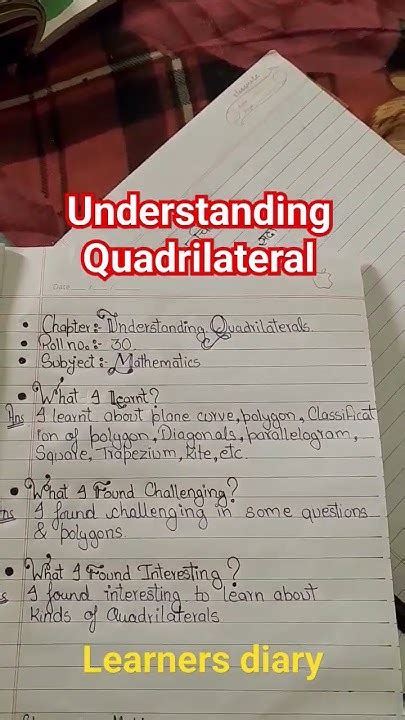 Understanding
Quadrilateral
Date
• Chapter:- Understanding Quadrilaterals.
• Roll no.:- 30
• Subject:- Mathematics
• What I Learnt?
Ans I learnt about plane curve, polygon, Classificat
ion of polygon, Diagonals, parallelogram,
Square, Trapezium, kite, etc.
• What I Found Challenging?
Ans I found challenging in some questions
& polygons.
• What I Found Interesting?
I found interesting to learn about
kinds of Quadrilaterals
Learners diary